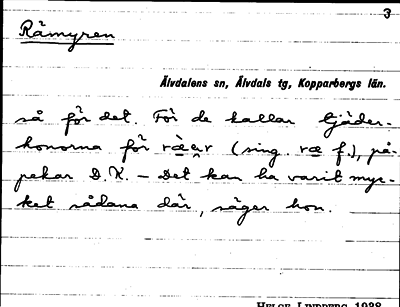 3
Rämyren
Älvdalens sn, Älvdals tg, Kopparbergs län.
så för det. För de kallar tjäder-
honorna för rèar (sing. ræ f.), på-
pekar D.K. – Det kan ha varit myc-
ket sådana där, säger hon.